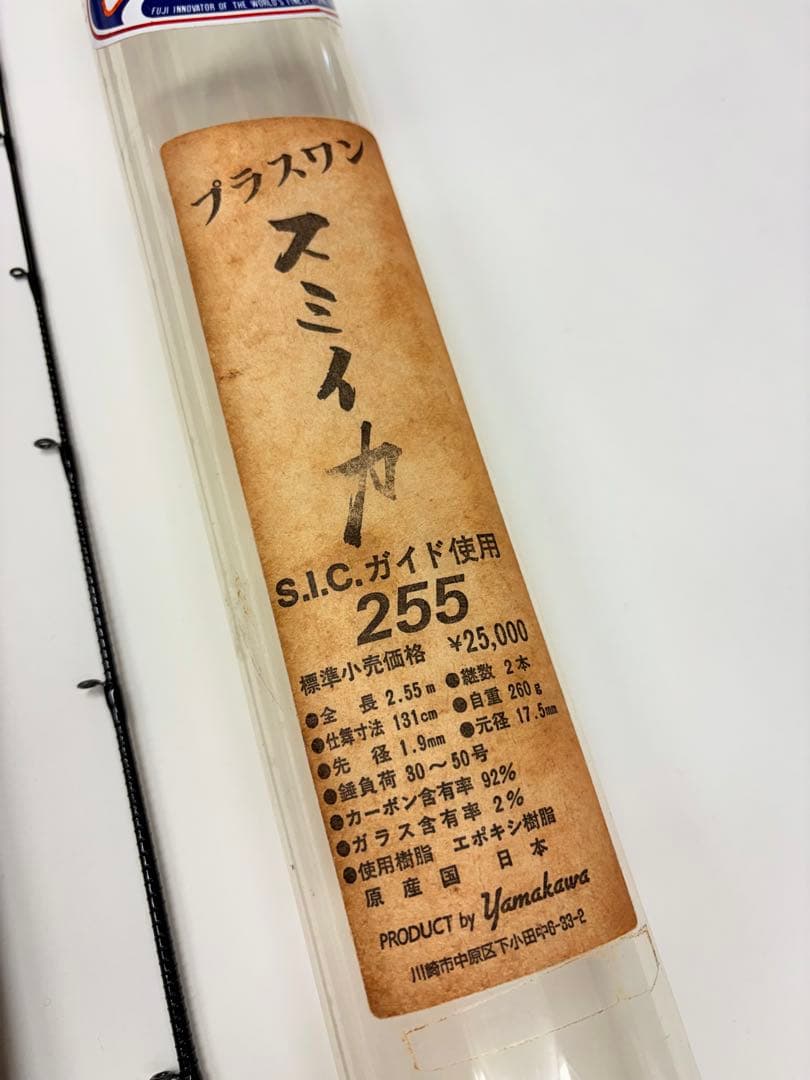 FUJI INNOVATOR OF THE WORLD'S FINEST
プラスワン
スミイカ
S.I.C.ガイド使用
255
標準小売価格 ¥25,000
●全長 2.55m ●継数 2本
●仕舞寸法 131cm ●自重 260g
●先径 1.9mm ●元径 17.5mm
●錘負荷 30～50号
●カーボン含有率 92%
●ガラス含有率 2%
●使用樹脂 エポキシ樹脂
原産国 日本
PRODUCT by Yamakawa
川崎市中原区下小田中6-33-2